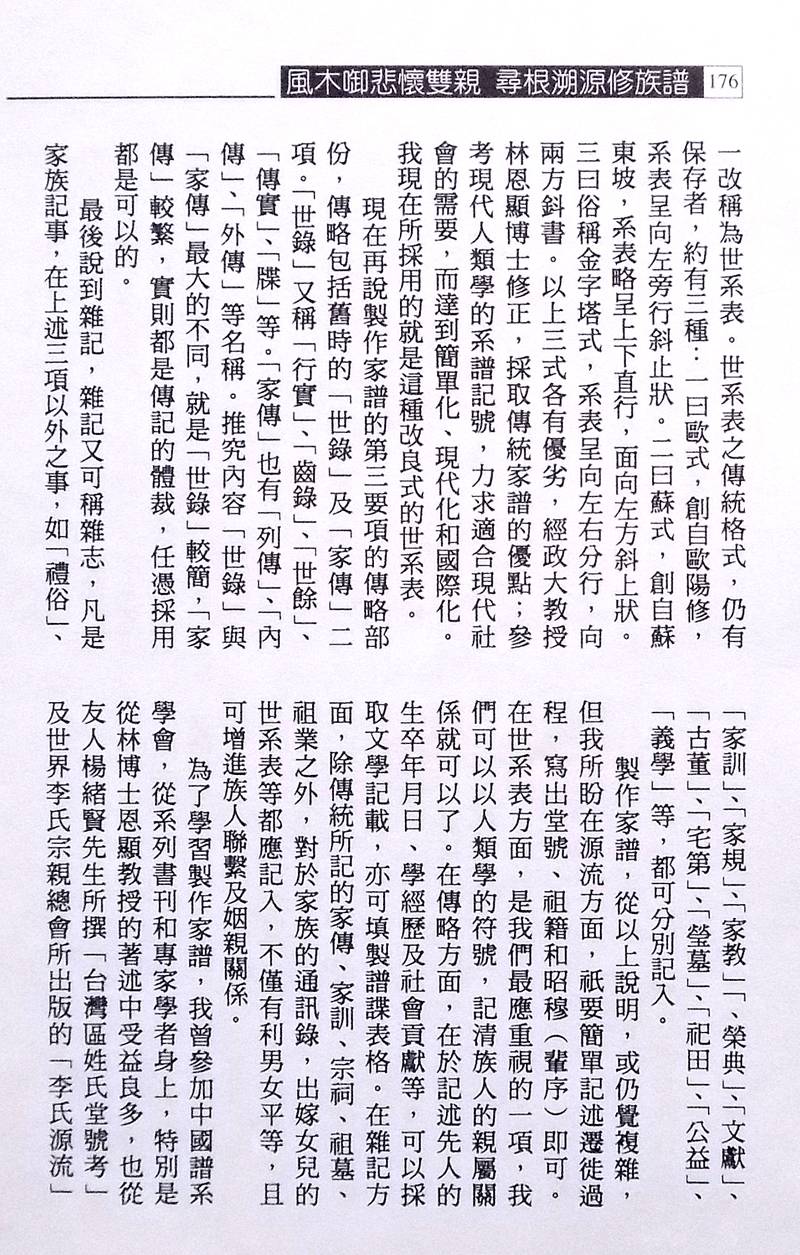 風木啣悲懷雙親 尋根溯源修族譜 176
一改稱為世系表。世系表之傳統格式，仍有
保存者，約有三種：一曰歐式，創自歐陽修，
系表呈向左旁行斜止狀。二曰蘇式，創自蘇
東坡，系表略呈上下直行，面向左方斜上狀。
三曰俗稱金字塔式，系表呈向左右分行，向
兩方斜書。以上三式各有優劣，經政大教授
林恩顯博士修正，採取傳統家譜的優點；參
考現代人類學的系譜記號，力求適合現代社
會的需要，而達到簡單化、現代化和國際化。
我現在所採用的就是這種改良式的世系表。
現在再說製作家譜的第三要項的傳略部
份，傳略包括舊時的「世錄」及「家傳」二
項。「世錄」又稱「行實」、「齒錄」、「世餘」、
「傳實」、「牒」等。「家傳」也有「列傳」、「內
傳」、「外傳」等名稱。推究內容「世錄」與
「家傳」最大的不同，就是「世錄」較簡，「家
傳」較繁，實則都是傳記的體裁，任憑採用
都是可以的。
最後說到雜記，雜記又可稱雜志，凡是
家族記事，在上述三項以外之事，如「禮俗」、
「家訓」、「家規」、「家教」「、榮典」、「文獻」、
「古董」、「宅第」、「瑩墓」、「祀田」、「公益」、
「義學」等，都可分別記入。
製作家譜，從以上說明，或仍覺複雜，
但我所盼在源流方面，祇要簡單記述遷徙過
程，寫出堂號、祖籍和昭穆（輩序）即可。
在世系表方面，是我們最應重視的一項，我
們可以以人類學的符號，記清族人的親屬關
係就可以了。在傳略方面，在於記述先人的
生卒年月日、學經歷及社會貢獻等，可以採
取文學記載，亦可填製譜諜表格。在雜記方
面，除傳統所記的家傳、家訓、宗祠、祖墓、
祖業之外，對於家族的通訊錄，出嫁女兒的
世系表等都應記入，不僅有利男女平等，且
可增進族人聯繫及姻親關係。
為了學習製作家譜，我曾參加中國譜系
學會，從系列書刊和專家學者身上，特別是
從林博士恩顯教授的著述中受益良多，也從
友人楊緒賢先生所撰「台灣區姓氏堂號考」
及世界李氏宗親總會所出版的「李氏源流」